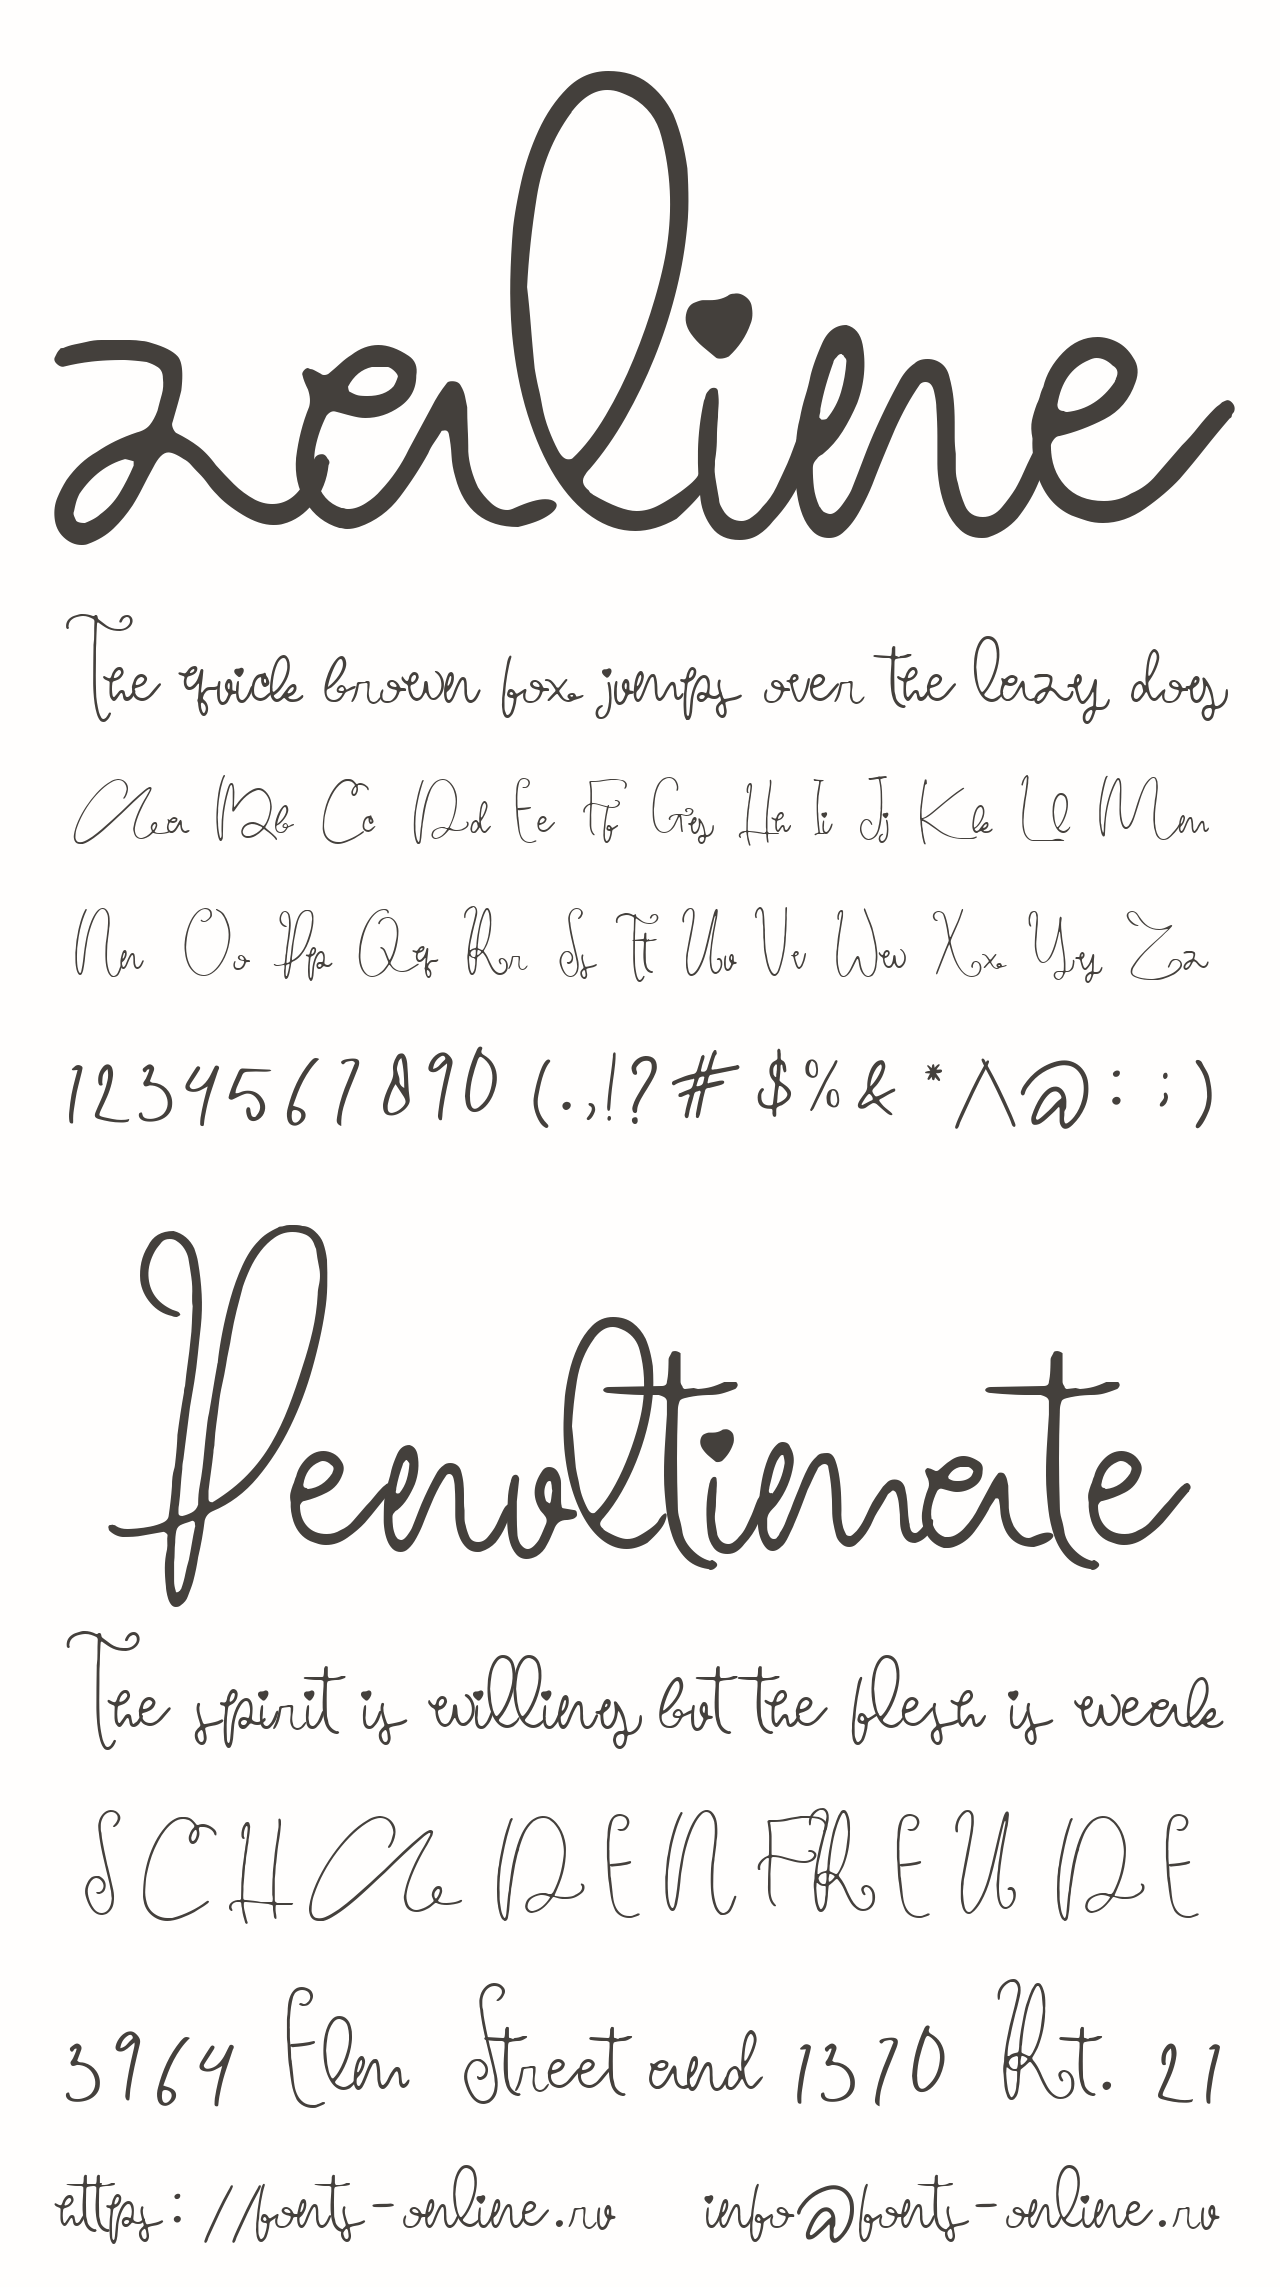 zaline
The quick brown fox jumps over the lazy dog
Aa Bb Cc Dd Ee Ff Gg Hh Ii Jj Kk Ll Mm
Nn Oo Pp Qq Rr Ss Tt Uu Vv Ww Xx Yy Zz
1234567890 (.,!?# $%& *^@: ; )
Penultimate
The spirit is willing but the flesh is weak
SCHADENFREUDE
3964 Elm Street and 1370 Rt. 21
https://fonts-online.ru info@fonts-online.ru